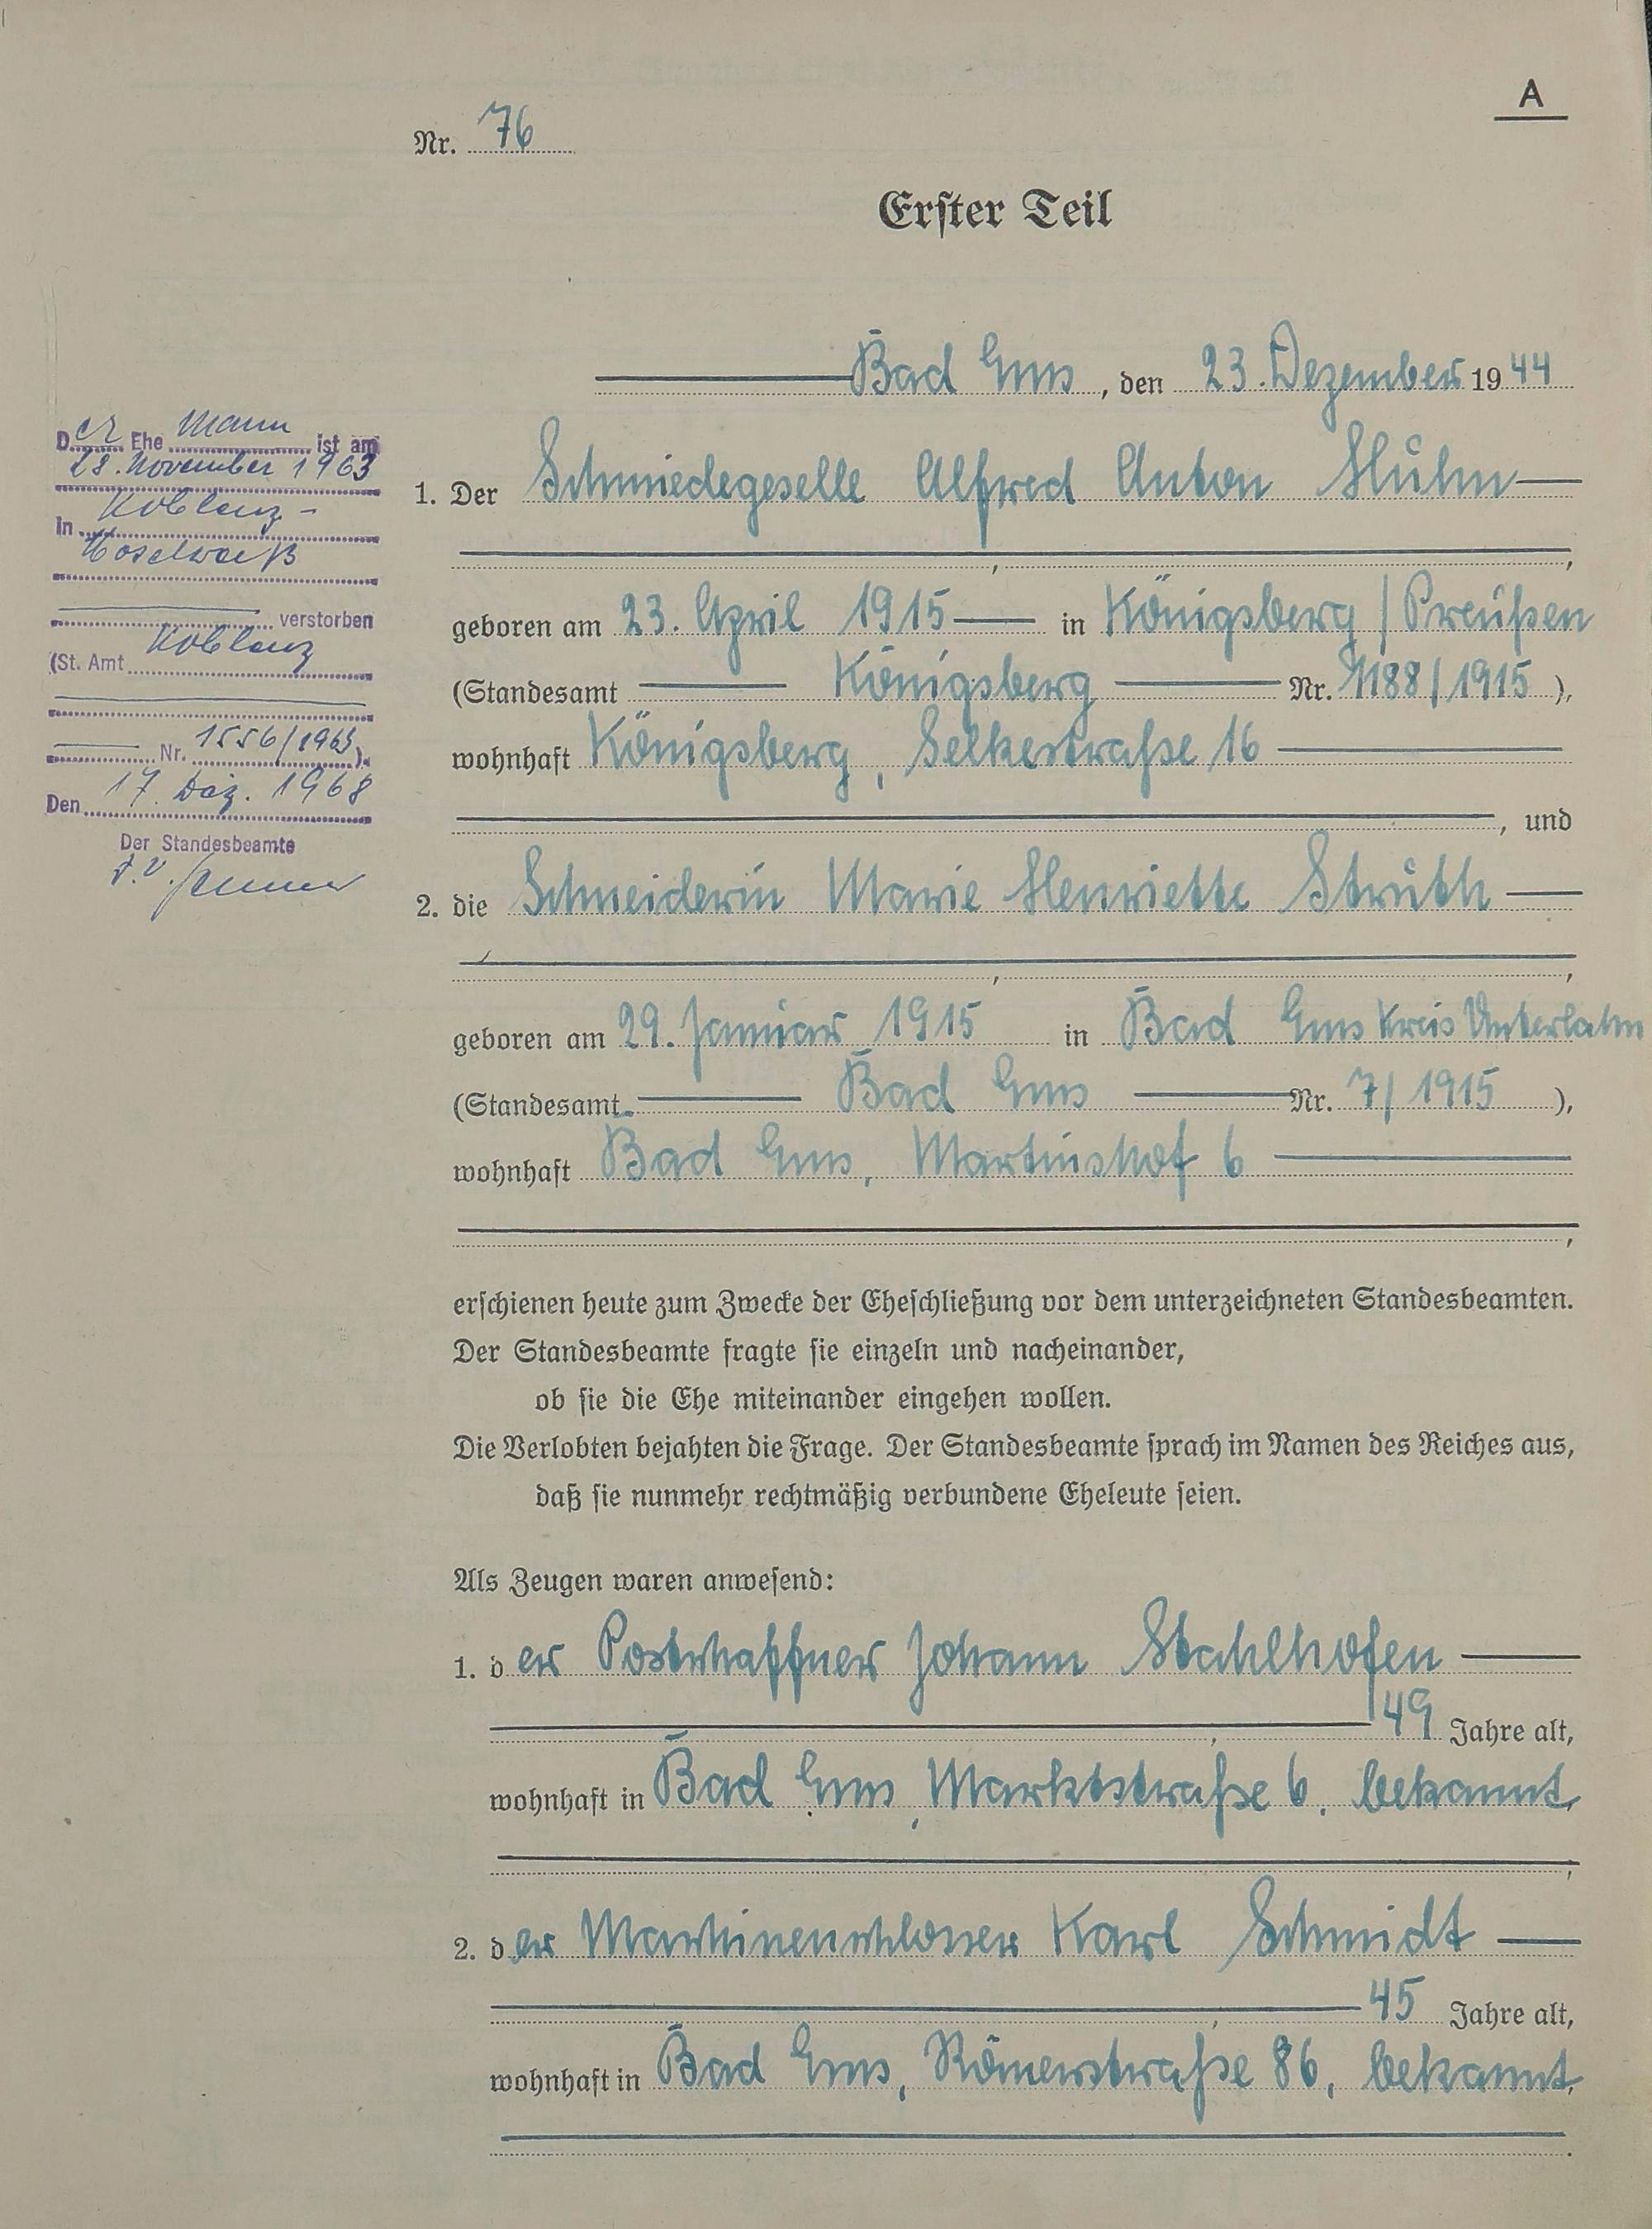 A
Nr. 76
Erster Teil
Bad Ems, den 23. Dezember 1944
Der Ehe Mann ist am
28. November 1963
in Koblenz-
Moselweiß
verstorben
(St. Amt Koblenz
Nr. 1556/1963).
Den 17. Dez. 1968
Der Standesbeamte
I.V.
1. Der Schmiedegeselle Alfred Anton Huhn
geboren am 23. April 1915 in Königsberg / Preußen
(Standesamt Königsberg Nr. 1188/1915),
wohnhaft Königsberg, Selkestraße 16
, und
2. die Schneiderin Marie Henriette Struth
geboren am 29. Januar 1915 in Bad Ems Kreis Unterlahn
(Standesamt Bad Ems Nr. 7/1915),
wohnhaft Bad Ems, Martinshof 6
erschienen heute zum Zwecke der Eheschließung vor dem unterzeichneten Standesbeamten.
Der Standesbeamte fragte sie einzeln und nacheinander,
ob sie die Ehe miteinander eingehen wollen.
Die Verlobten bejahten die Frage. Der Standesbeamte sprach im Namen des Reiches aus,
daß sie nunmehr rechtmäßig verbundene Eheleute seien.
Als Zeugen waren anwesend:
1. der Postschaffner Johann Stahlhofen
49 Jahre alt,
wohnhaft in Bad Ems, Marktstraße 6, bekannt,
2. der Maschinenschlosser Karl Schmidt
45 Jahre alt,
wohnhaft in Bad Ems, Römerstraße 86, bekannt.